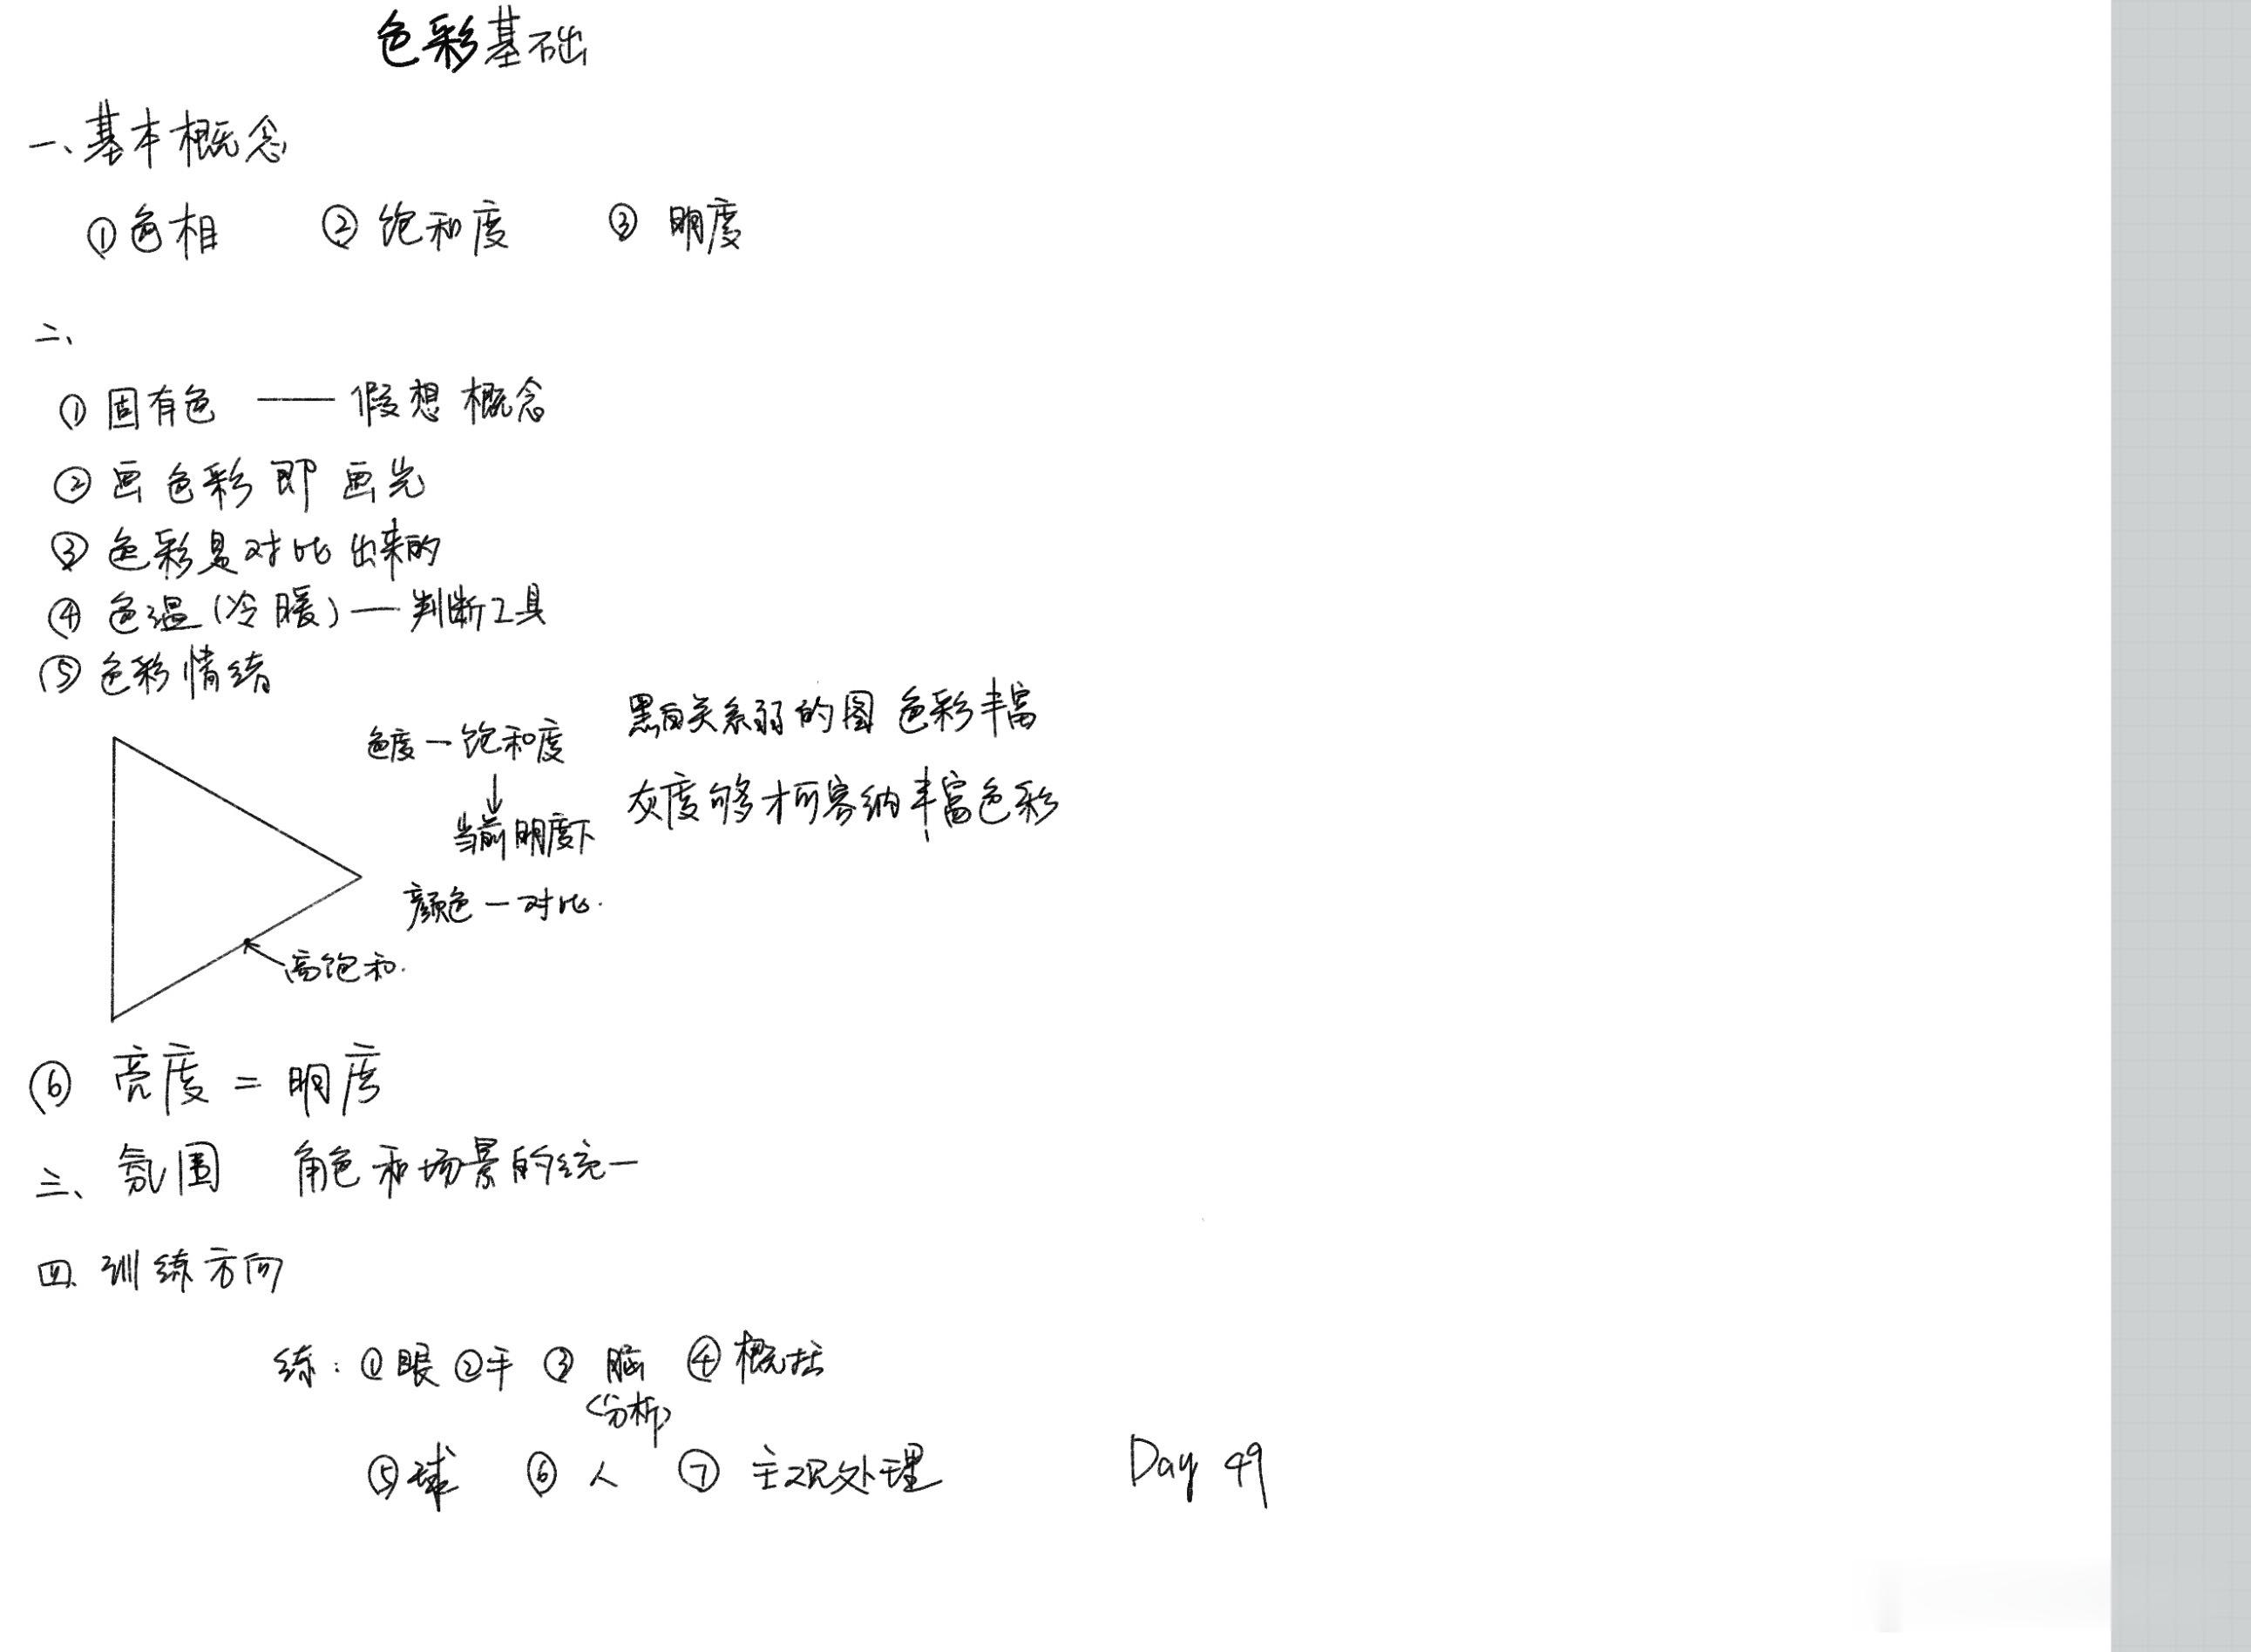 色彩基础
一、基本概念
①色相 ②饱和度 ③明度
二、
①固有色 —— 假想概念
②画色彩即画光
③色彩是对比出来的
④色温(冷暖)—判断工具
⑤色彩情绪
黑白关系弱的图 色彩丰富
色度—饱和度
↓
灰度够才可容纳丰富色彩
当前明度下
颜色—对比.
高饱和.
⑥亮度=明度
三、氛围 角色和场景的统一
四、训练方向
练:①眼②手③脑④概括
(分析)
⑤球 ⑥人 ⑦主观处理
Day 49